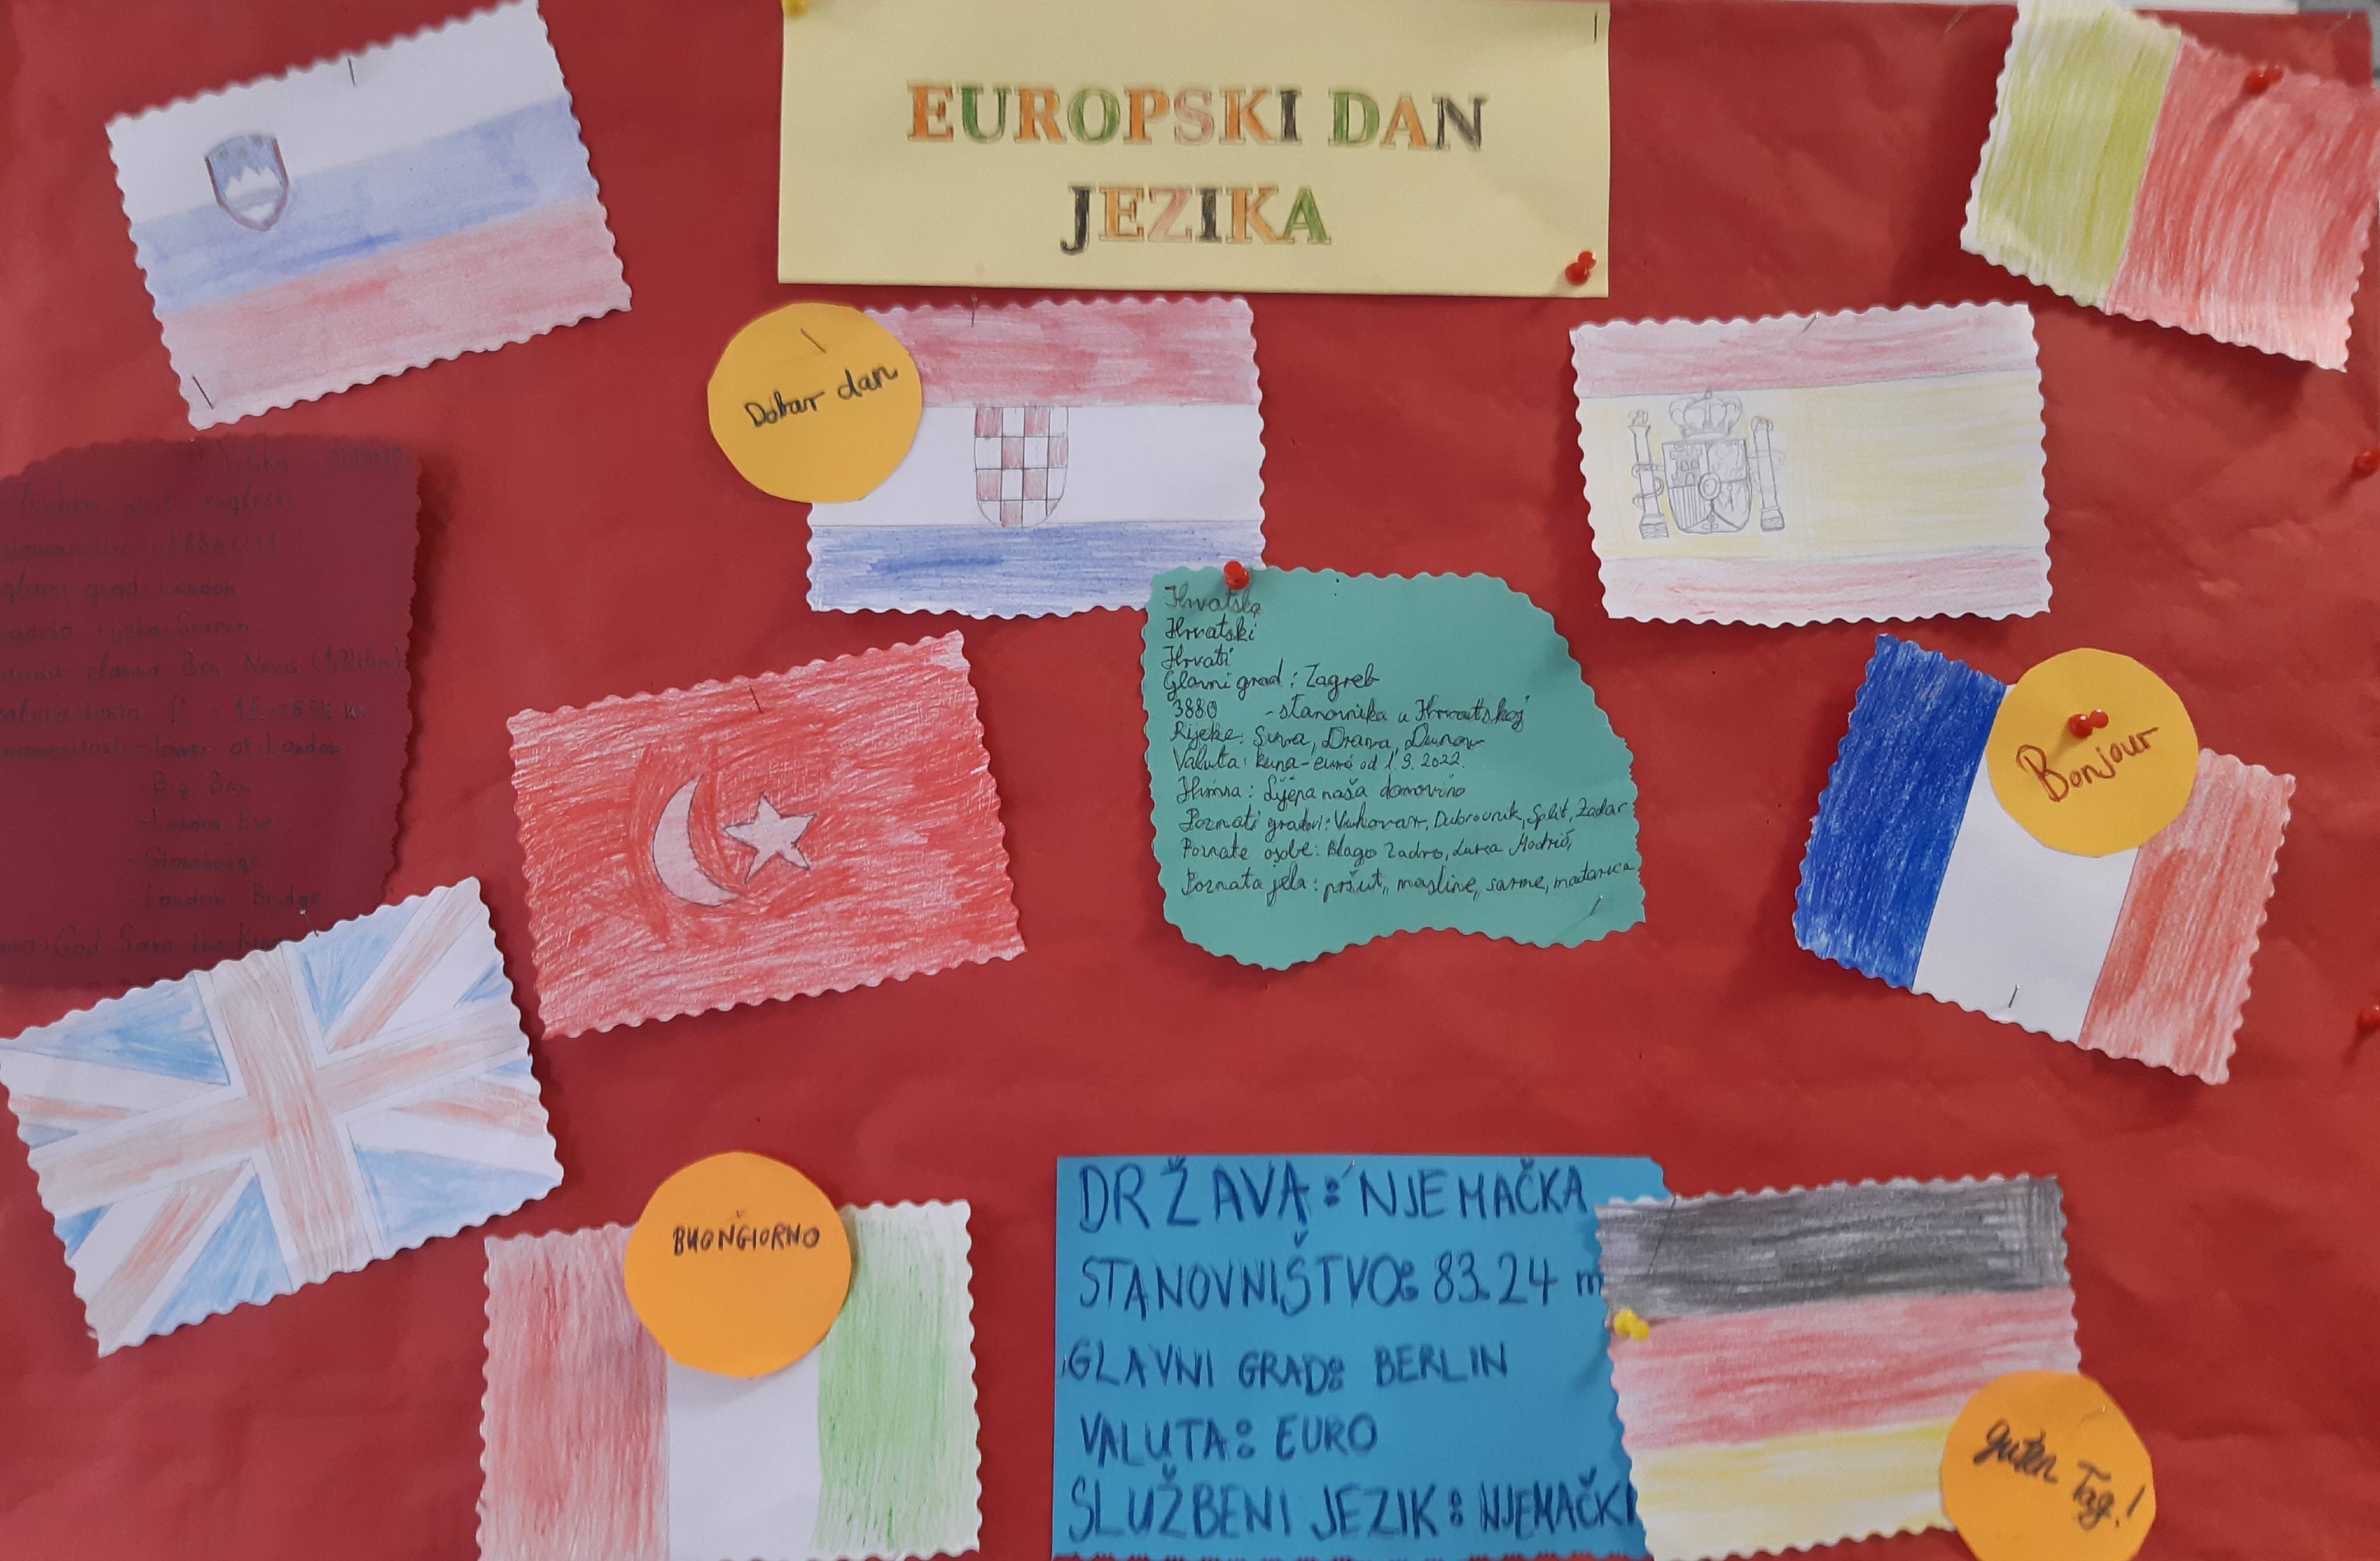 EUROPSKI DAN
JEZIKA
Dobar dan
Velika
jezik engleski
glavni grad London
rijeka Severn
planina Ben Nevis (1346m)
valuta funta £ - 1£ =
- Tower of London
- Big Ben
- London Eye
- Stonehenge
- London Bridge
God Save the King
Hrvatska
Hrvatski
Hrvati
Glavni grad : Zagreb
3880 - stanovnika u Hrvatskoj
Rijeke: Sava, Drava, Dunav
Valuta: kuna-euro od 1.9.2022.
Himna: Lijepa naša domovino
Poznati gradovi: Vukovar, Dubrovnik, Split, Zadar
Poznate osobe: Blago Zadro, Luka Modrić,
Poznata jela: pršut, masline, sarme, mađarica
Bonjour
BUONGIORNO
DRŽAVA: NJEMAČKA
STANOVNIŠTVO: 83.24 m
GLAVNI GRAD: BERLIN
VALUTA: EURO
SLUŽBENI JEZIK: NJEMAČKI
guten
Tag!